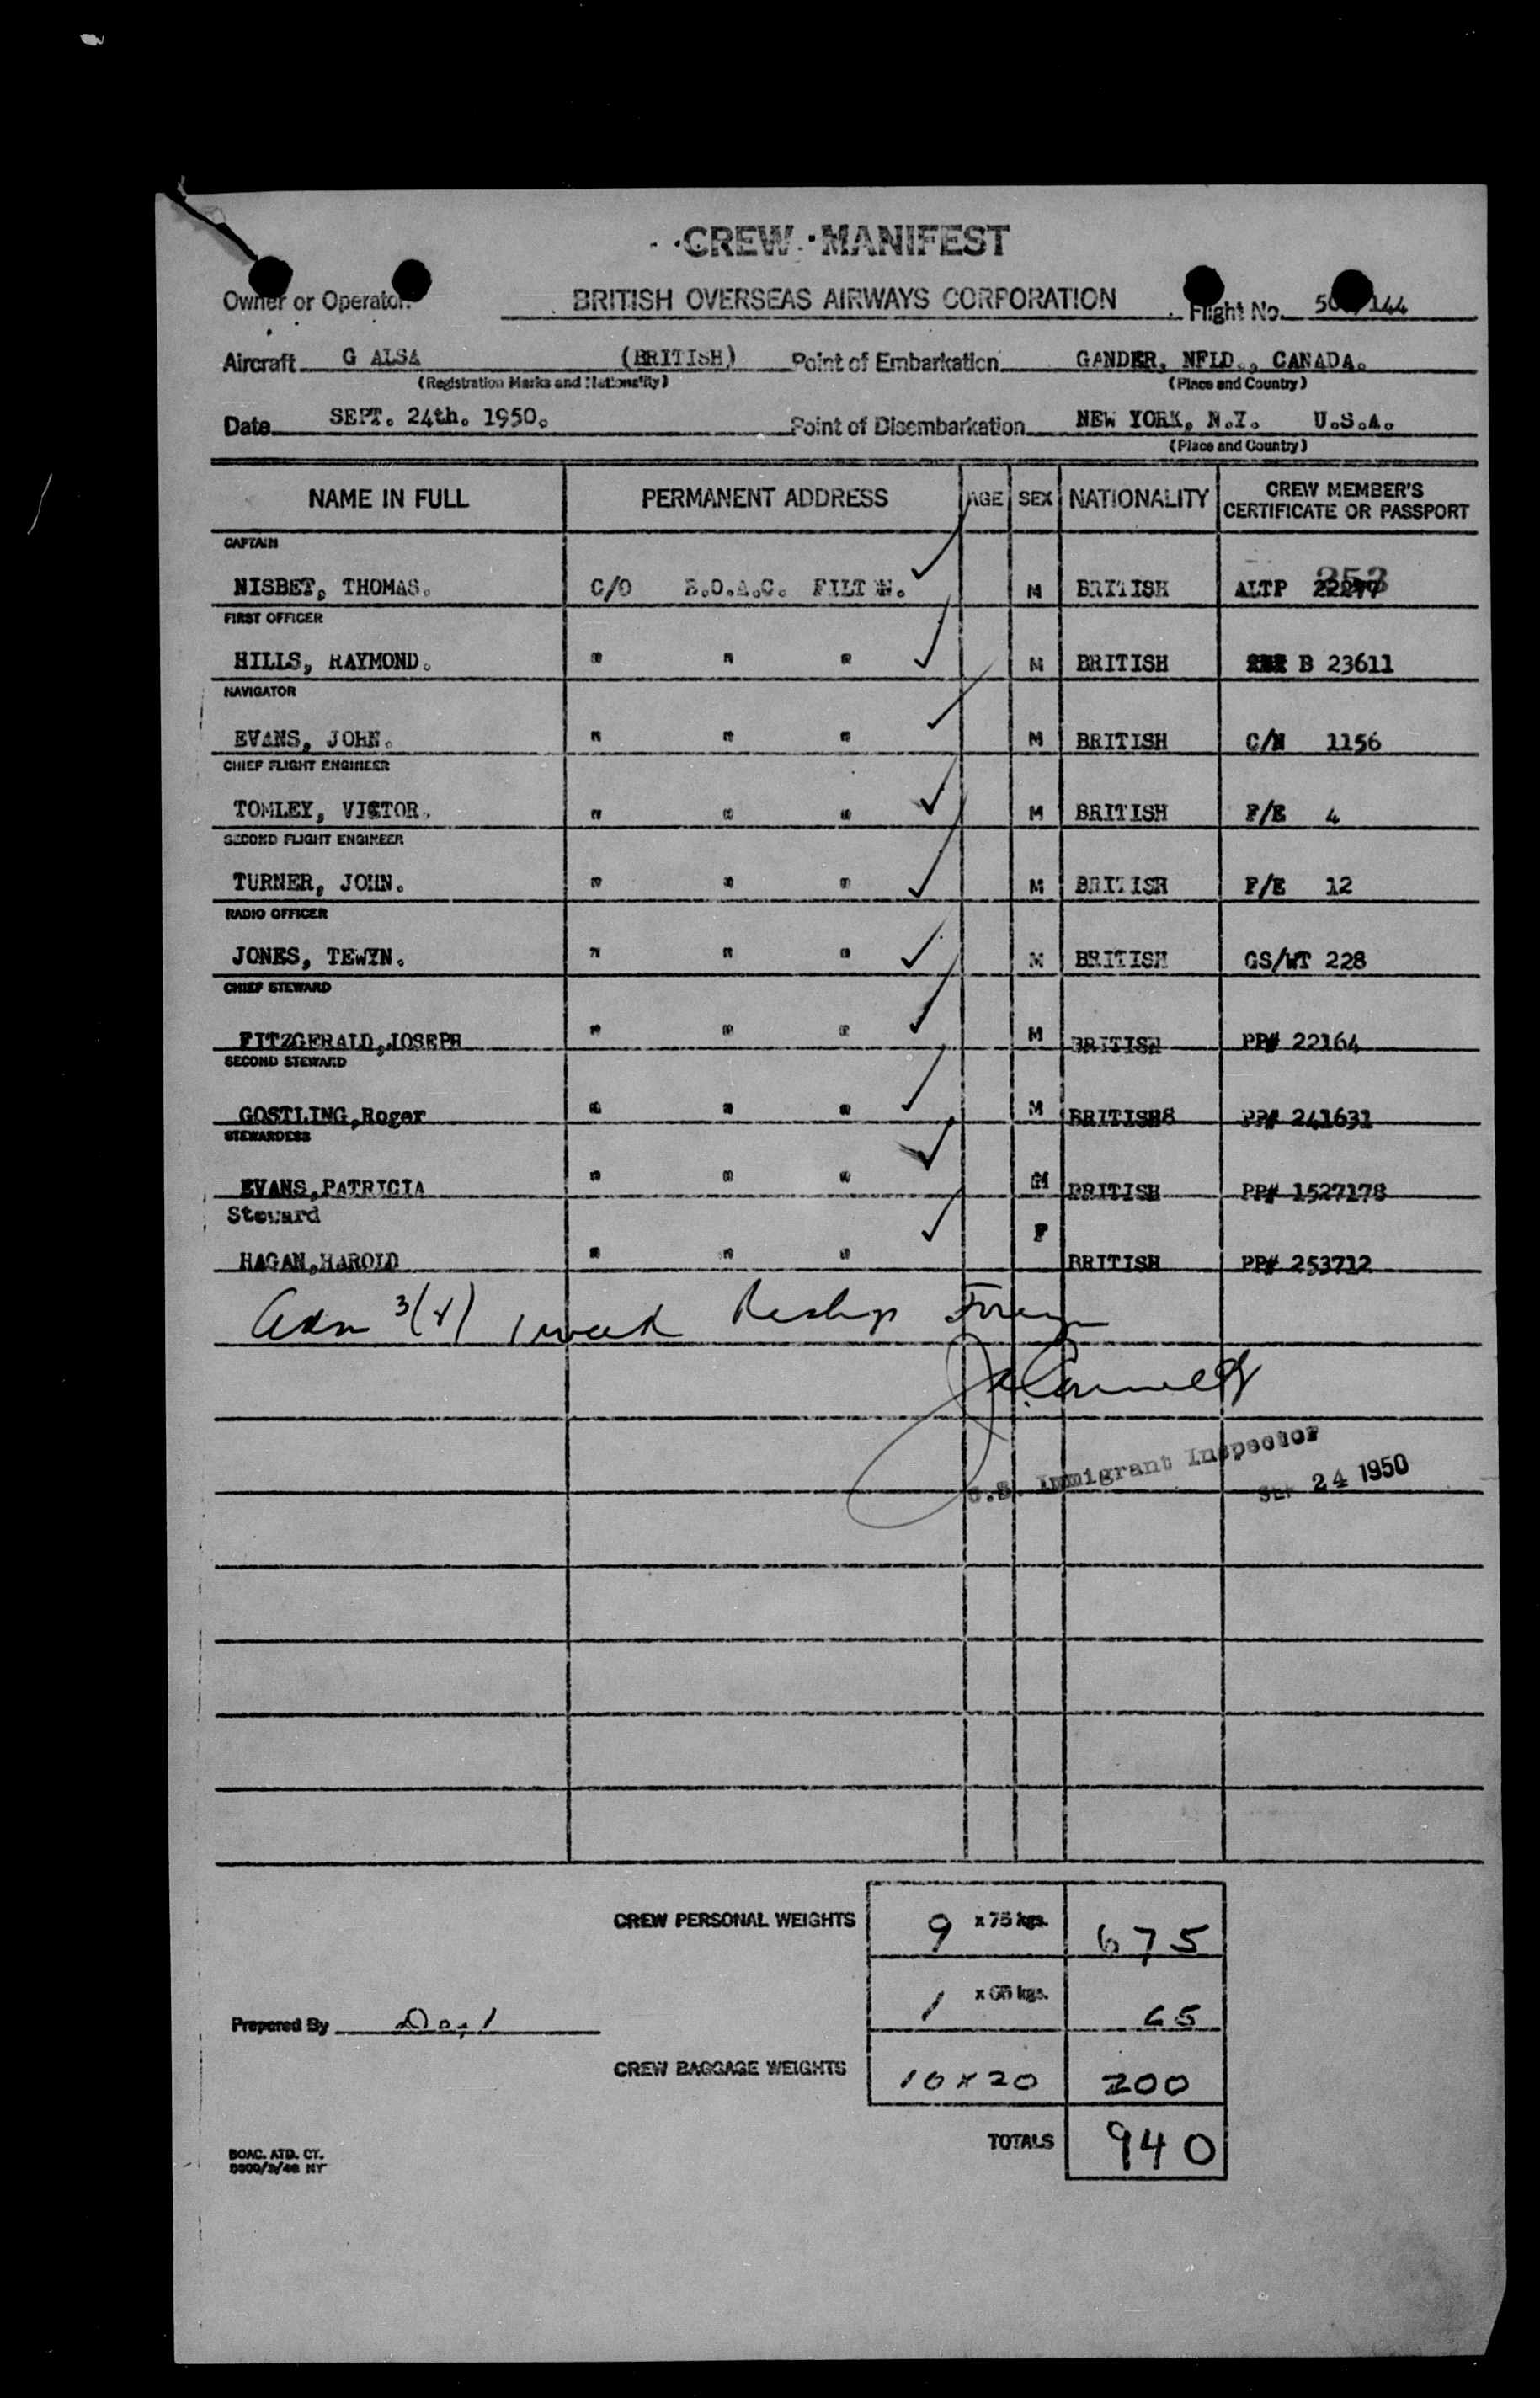 CREW MANIFEST
Owner or Operator BRITISH OVERSEAS AIRWAYS CORPORATION Flight No. 144
Aircraft G ALSA (BRITISH) Point of Embarkation GANDER, NFLD., CANADA.
(Registration Marks and Nationality) (Place and Country)
Date SEPT. 24th. 1950. Point of Disembarkation NEW YORK, N.Y. U.S.A.
(Place and Country)
NAME IN FULL PERMANENT ADDRESS AGE SEX NATIONALITY CREW MEMBER'S CERTIFICATE OR PASSPORT
CAPTAIN
253
NISBET, THOMAS. C/O B.O.A.C. FILTON. M BRITISH ALTP
FIRST OFFICER
HILLS, RAYMOND. " " " M BRITISH B 23611
NAVIGATOR
EVANS, JOHN. " " " M BRITISH C/N 1156
CHIEF FLIGHT ENGINEER
TOMLEY, VICTOR. " " " M BRITISH F/E 4
SECOND FLIGHT ENGINEER
TURNER, JOHN. " " " M BRITISH F/E 12
RADIO OFFICER
JONES, TEWYN. " " " M BRITISH GS/WT 228
CHIEF STEWARD
FITZGERALD,JOSEPH " " " M BRITISH PP# 22164
SECOND STEWARD
GOSTLING,Roger " " " M BRITISH8 PP# 241631
STEWARDESS
EVANS,PATRICIA " " " M BRITISH PP# 1527178
Steward
HAGAN,HAROLD " " " F BRITISH PP# 253712
Adm 3(4) 1 week Reship Foreign
U.S. Immigrant Inspector
SEP 24 1950
CREW PERSONAL WEIGHTS 9 x 75 kgs. 675
1 x 65 kgs. 65
Prepared By
CREW BAGGAGE WEIGHTS 10 x 20 200
TOTALS 940
BOAC. ATD. CT.